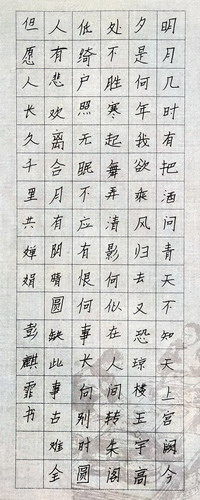 明月几时有把酒问青天不知天上宫阙今
夕是何年我欲乘风归去又恐琼楼玉宇高
处不胜寒起舞弄清影何似在人间转朱阁
低绮户照无眠不应有恨何事长向别时圆
人有悲欢离合月有阴晴圆缺此事古难全
但愿人长久千里共婵娟 彭麒霏书